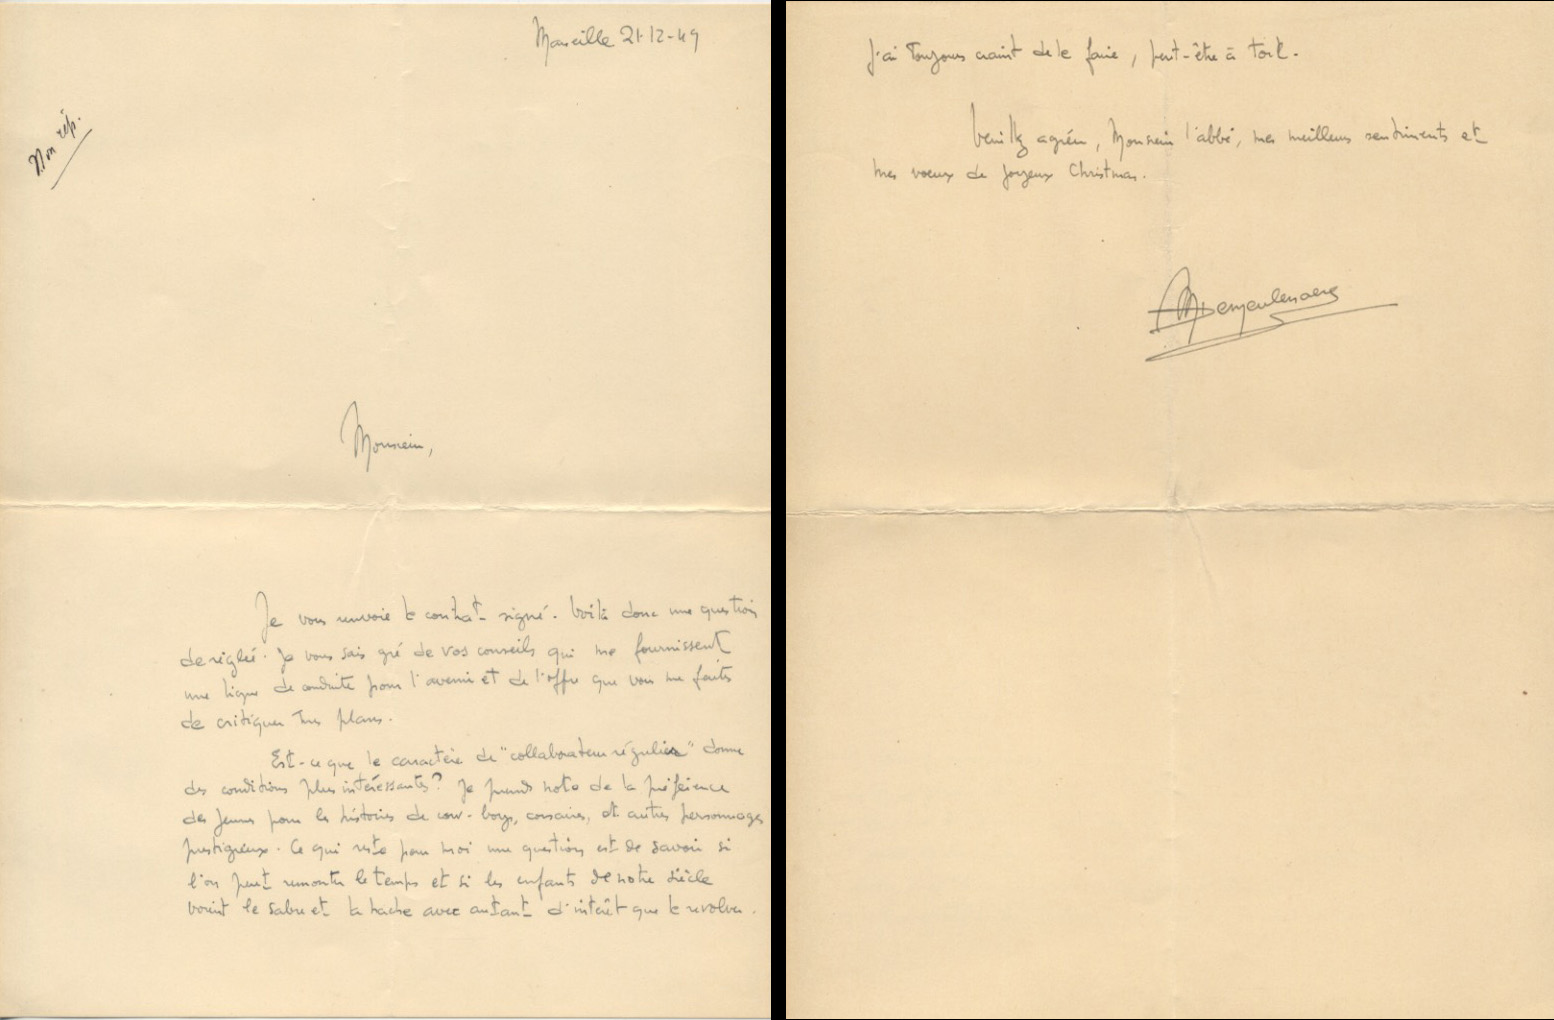 Marseille 21-12-49
Non rép.
Monsieur,
Je vous renvoie le contrat signé. Voilà donc une question
de réglée. Je vous sais gré de vos conseils qui me fournissent
une ligne de conduite pour l'avenir et de l'offre que vous me faites
de critiquer mes plans.
Est-ce que le caractère de "collaborateur régulier" donne
des conditions plus intéressantes? Je prends note de la préférence
des jeunes pour les histoires de cow-boys, corsaires, et autres personnages
prestigieux. Ce qui reste pour moi une question est de savoir si
l'on peut remonter le temps et si les enfants de notre siècle
voient le sabre et la hache avec autant d'intérêt que le revolver.
J'ai toujours craint de le faire, peut-être à tort.
Veuillez agréer, Monsieur l'abbé, mes meilleurs sentiments et
mes voeux de joyeux Christmas.